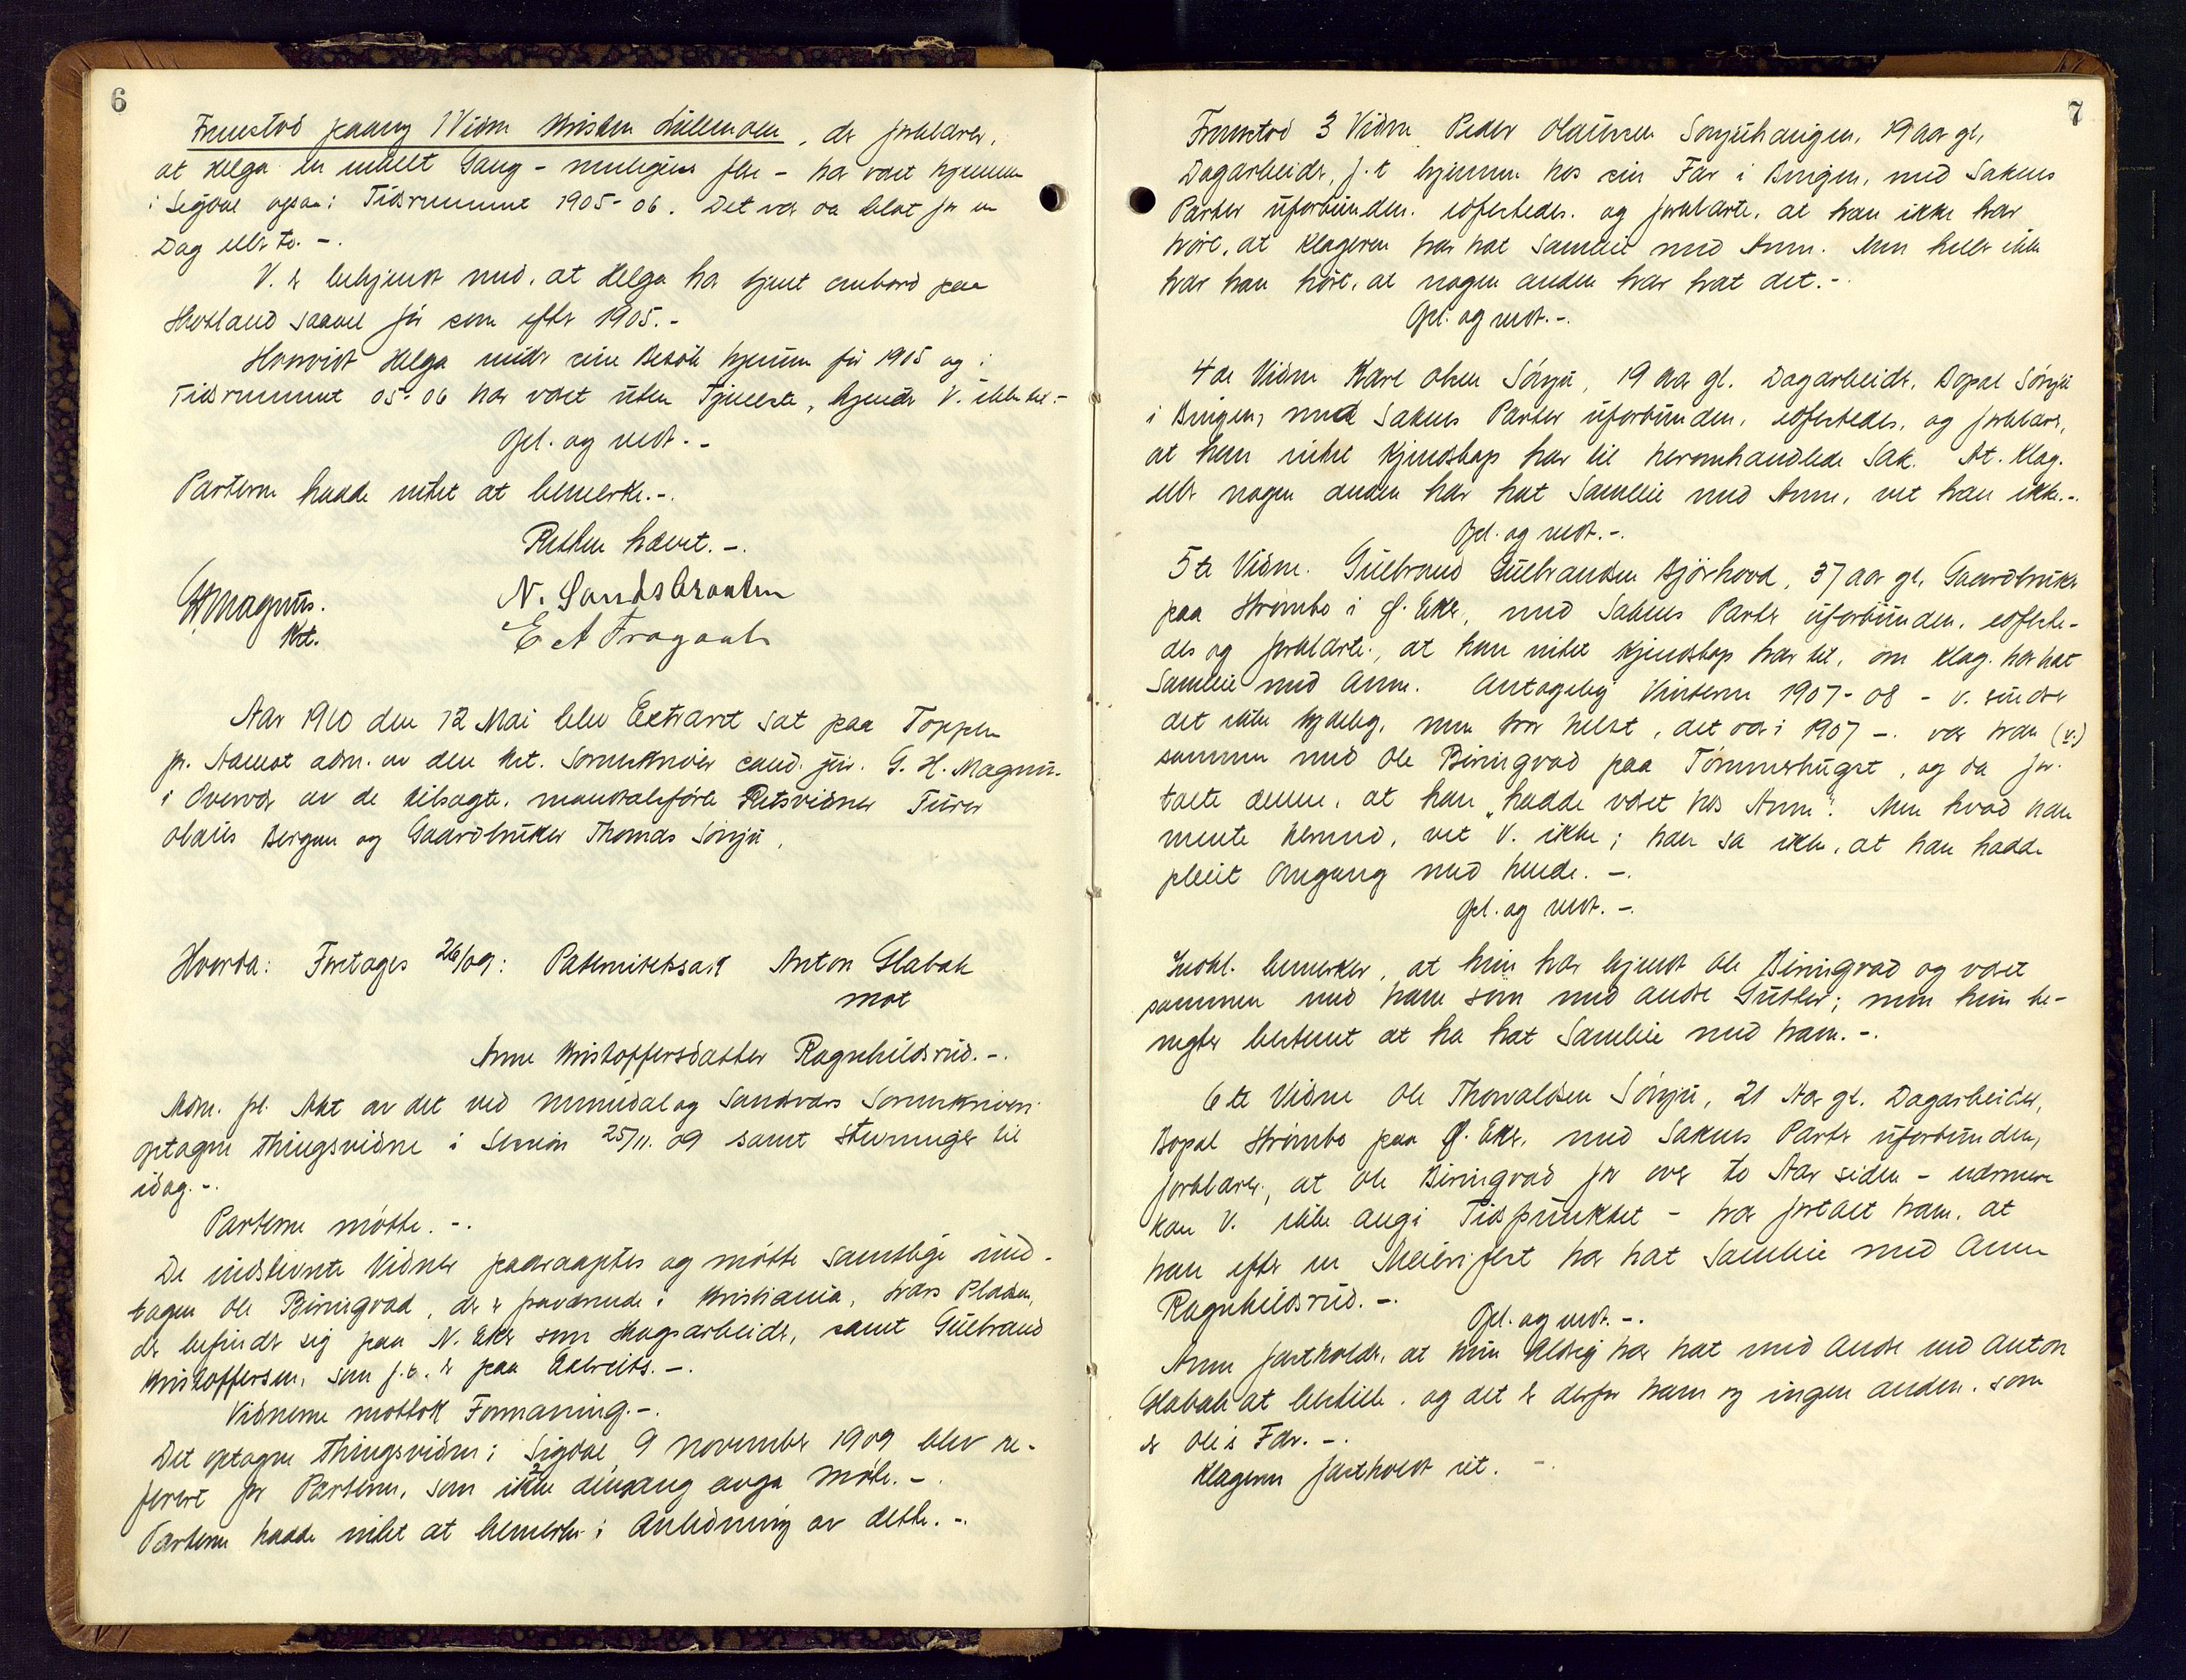 6
Fremstod paany 1 Vidne Kristen Lillemoen, der forklarer,
at Helga en enkelt Gang - muligens flere - har været hjemme
i Sigdal ogsaa i Tidsrummet 1905-06. Det var da blot for en
Dag eller to. -.
V. er bekjendt med, at Helga har tjent ombord paa
Hvalland saavel før som efter 1905. -
Hvorvidt Helga under sine Besøk hjemme før 1905 og i
Tidsrummet 05-06 har været uten Tjeneste, kjender V. ikke til. -
Opl. og vedt. -
Parterne hadde intet at bemerke. -.
Retten hævet. -.
G.H. Magnus. N. Sandsbraaten
Kst. E A Fragaat
Aar 1910 den 12 Mai blev Extraret sat paa Toppen
pr. Aamot adm. av den kst. Sorenskriver cand. jur. G. H. Magnus
i Overvær av de tilsagte, mandtalsførte Retsvidner Furer
Olaus Bergan og Gaardbruker Thomas Sønju.
Hvorda: Foretages 26/09: Paternitetssak Anton Glabak
mot
Anne Kristoffersdatter Ragnhildsrud. -.
Adm. frl. Akt av det ved Numedal og Sandsværs Sorenskriveri
optagne Thingsvidne i Session 25/11. 09 samt Stevninger til
idag. -.
Parterne møtte. -.
De indstevnte Vidner paaraaptes og møtte samtlige und-
tagen Ole Biringvad, der er fraværende i Kristiania, Lars Pladsen,
der befinder sig paa N. Eker som Skogsarbeider, samt Gulbrand
Kristoffersen, som f.t. er paa Exercits. -.
Vidnerne mottok Formaning. -.
Det optagne Thingsvidne i Sigdal 9 november 1909 blev re-
fereret for Parterne, som ikke dengang avga Møte. -.
Parterne hadde intet at bemerke i Anledning av dette. -.
7
Fremstod 3 Vidne Peder Olaussen Sønjuhaugen, 19 Aar gl.
Dagarbeider, f.t. hjemme hos sin Far i Bingen, med Sakens
Parter uforbunden, edfestedes, og forklarte, at han ikke har
hørt, at Klageren har hat Samleie med Anne. Men heller ikke
har han hørt, at nogen anden har hat det. -.
Opl. og vedt. -.
4de Vidne Karl Olsen Sønju, 19 Aar gl. Dagarbeider, Bopæl Sønju
i Bingen, med Sakens Parter uforbunden, edfestedes, og forklarer,
at han intet Kjendskap har til heromhandlede Sak. At Klag.
eller nogen anden har hat Samleie med Anne, vet han ikke. -.
Opl. og vedt. -.
5te Vidne. Gulbrand Gulbrandsen Bjørhovd, 37 Aar gl. Gaardbruker
paa Strømbo i Ø. Eker, med Sakens Parter uforbunden, edfeste-
des og forklarte, at han intet Kjendskap har til, om Klag. har hat
Samleie med Anne. Antagelig Vinteren 1907-08 - V. sindes
det ikke tydelig, men tror helst, det var i 1907 -. var han (v.)
sammen med Ole Biringvad paa Tømmerhugst, og da for-
talte denne, at han "hadde været hos Anne". Men hvad han
mente hermed, vet V. ikke; han sa ikke, at han hadde
pleiet Omgang med hende. -.
Opl. og vedt. -.
Indkl. bemerker, at hun har kjendt Ole Biringvad og været
sammen med ham som med andre Gutter; men hun be-
negter bestemt at ha hat Samleie med ham. -.
6te Vidne Ole Thorvaldsen Sønju, 21 Aar gl. Dagarbeider,
Bopæl Strømbo paa Ø. Eker, med Sakens Parter uforbunden,
forklarer, at Ole Biringvad for over to Aar siden - nærmere
kan V. ikke angi Tidspunktet - har fortalt ham, at
han efter en Meierifest har hat Samleie med Anne
Ragnhildsrud. -.
Opl. og vedt. -.
Anne fastholder, at hun aldrig har hat med andre end Anton
Glabak at bestille, og det er derfor ham og ingen anden, som
er Ole's Far. -.
Klageren fastholdt sit. -.